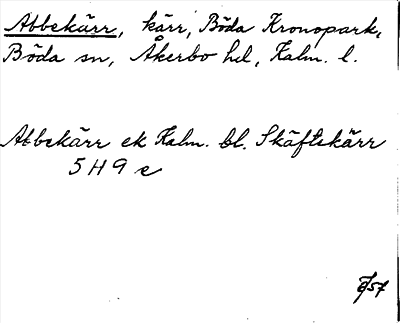 Abbekärr, kärr, Böda Kronopark,
Böda sn, Åkerbo hd, Kalm. l.
Abbekärr ek Kalm. bl. Skäftekärr
5 H 9 e
57